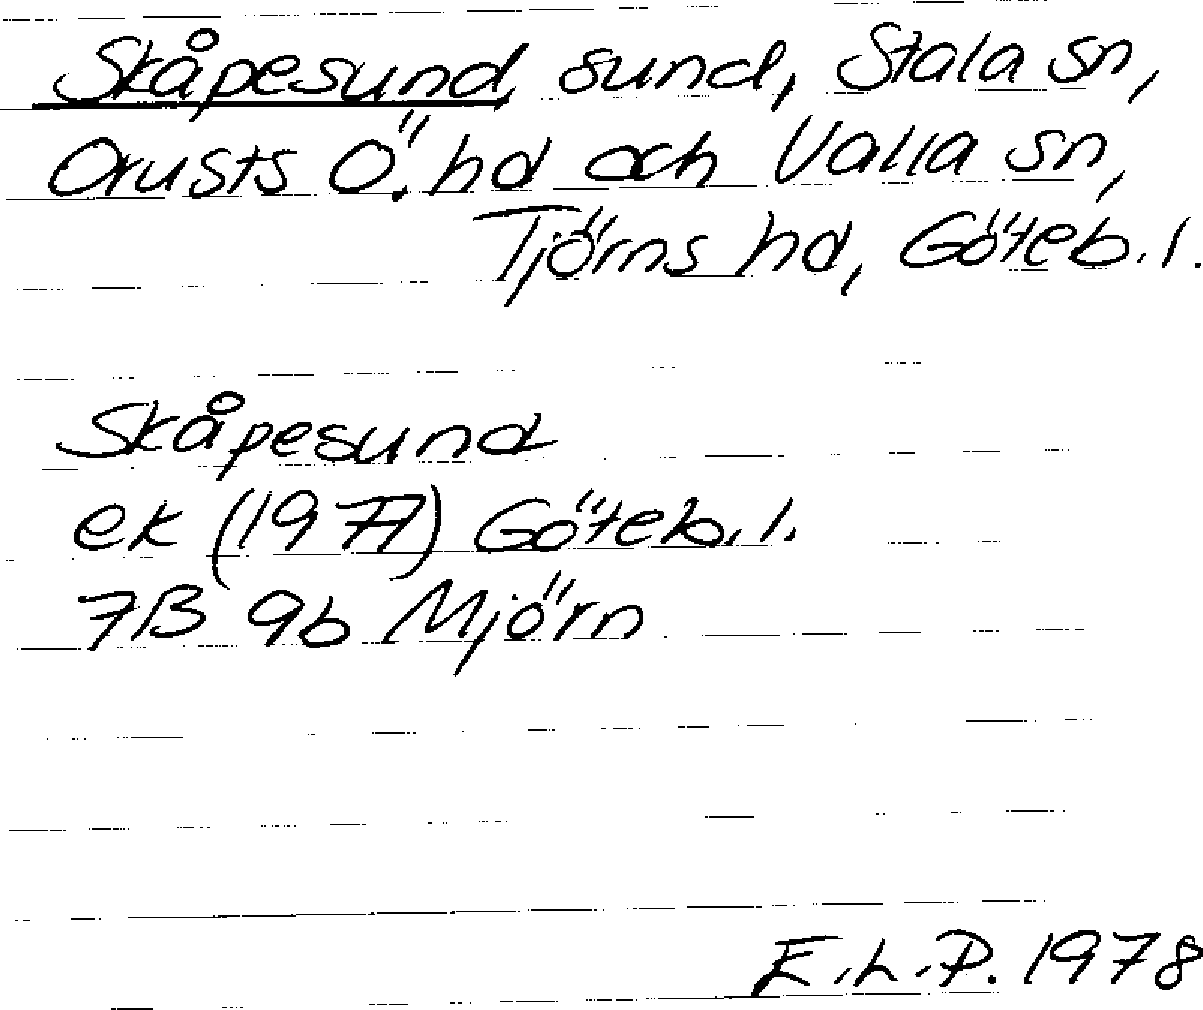 Skåpesund, sund, Stala sn,
Orusts Ö. hd och Valla sn,
Tjörns hd, Göteb. l.
Skåpesund
ek (1977) Göteb. l.
7B 9b Mjörn
E.L.P. 1978